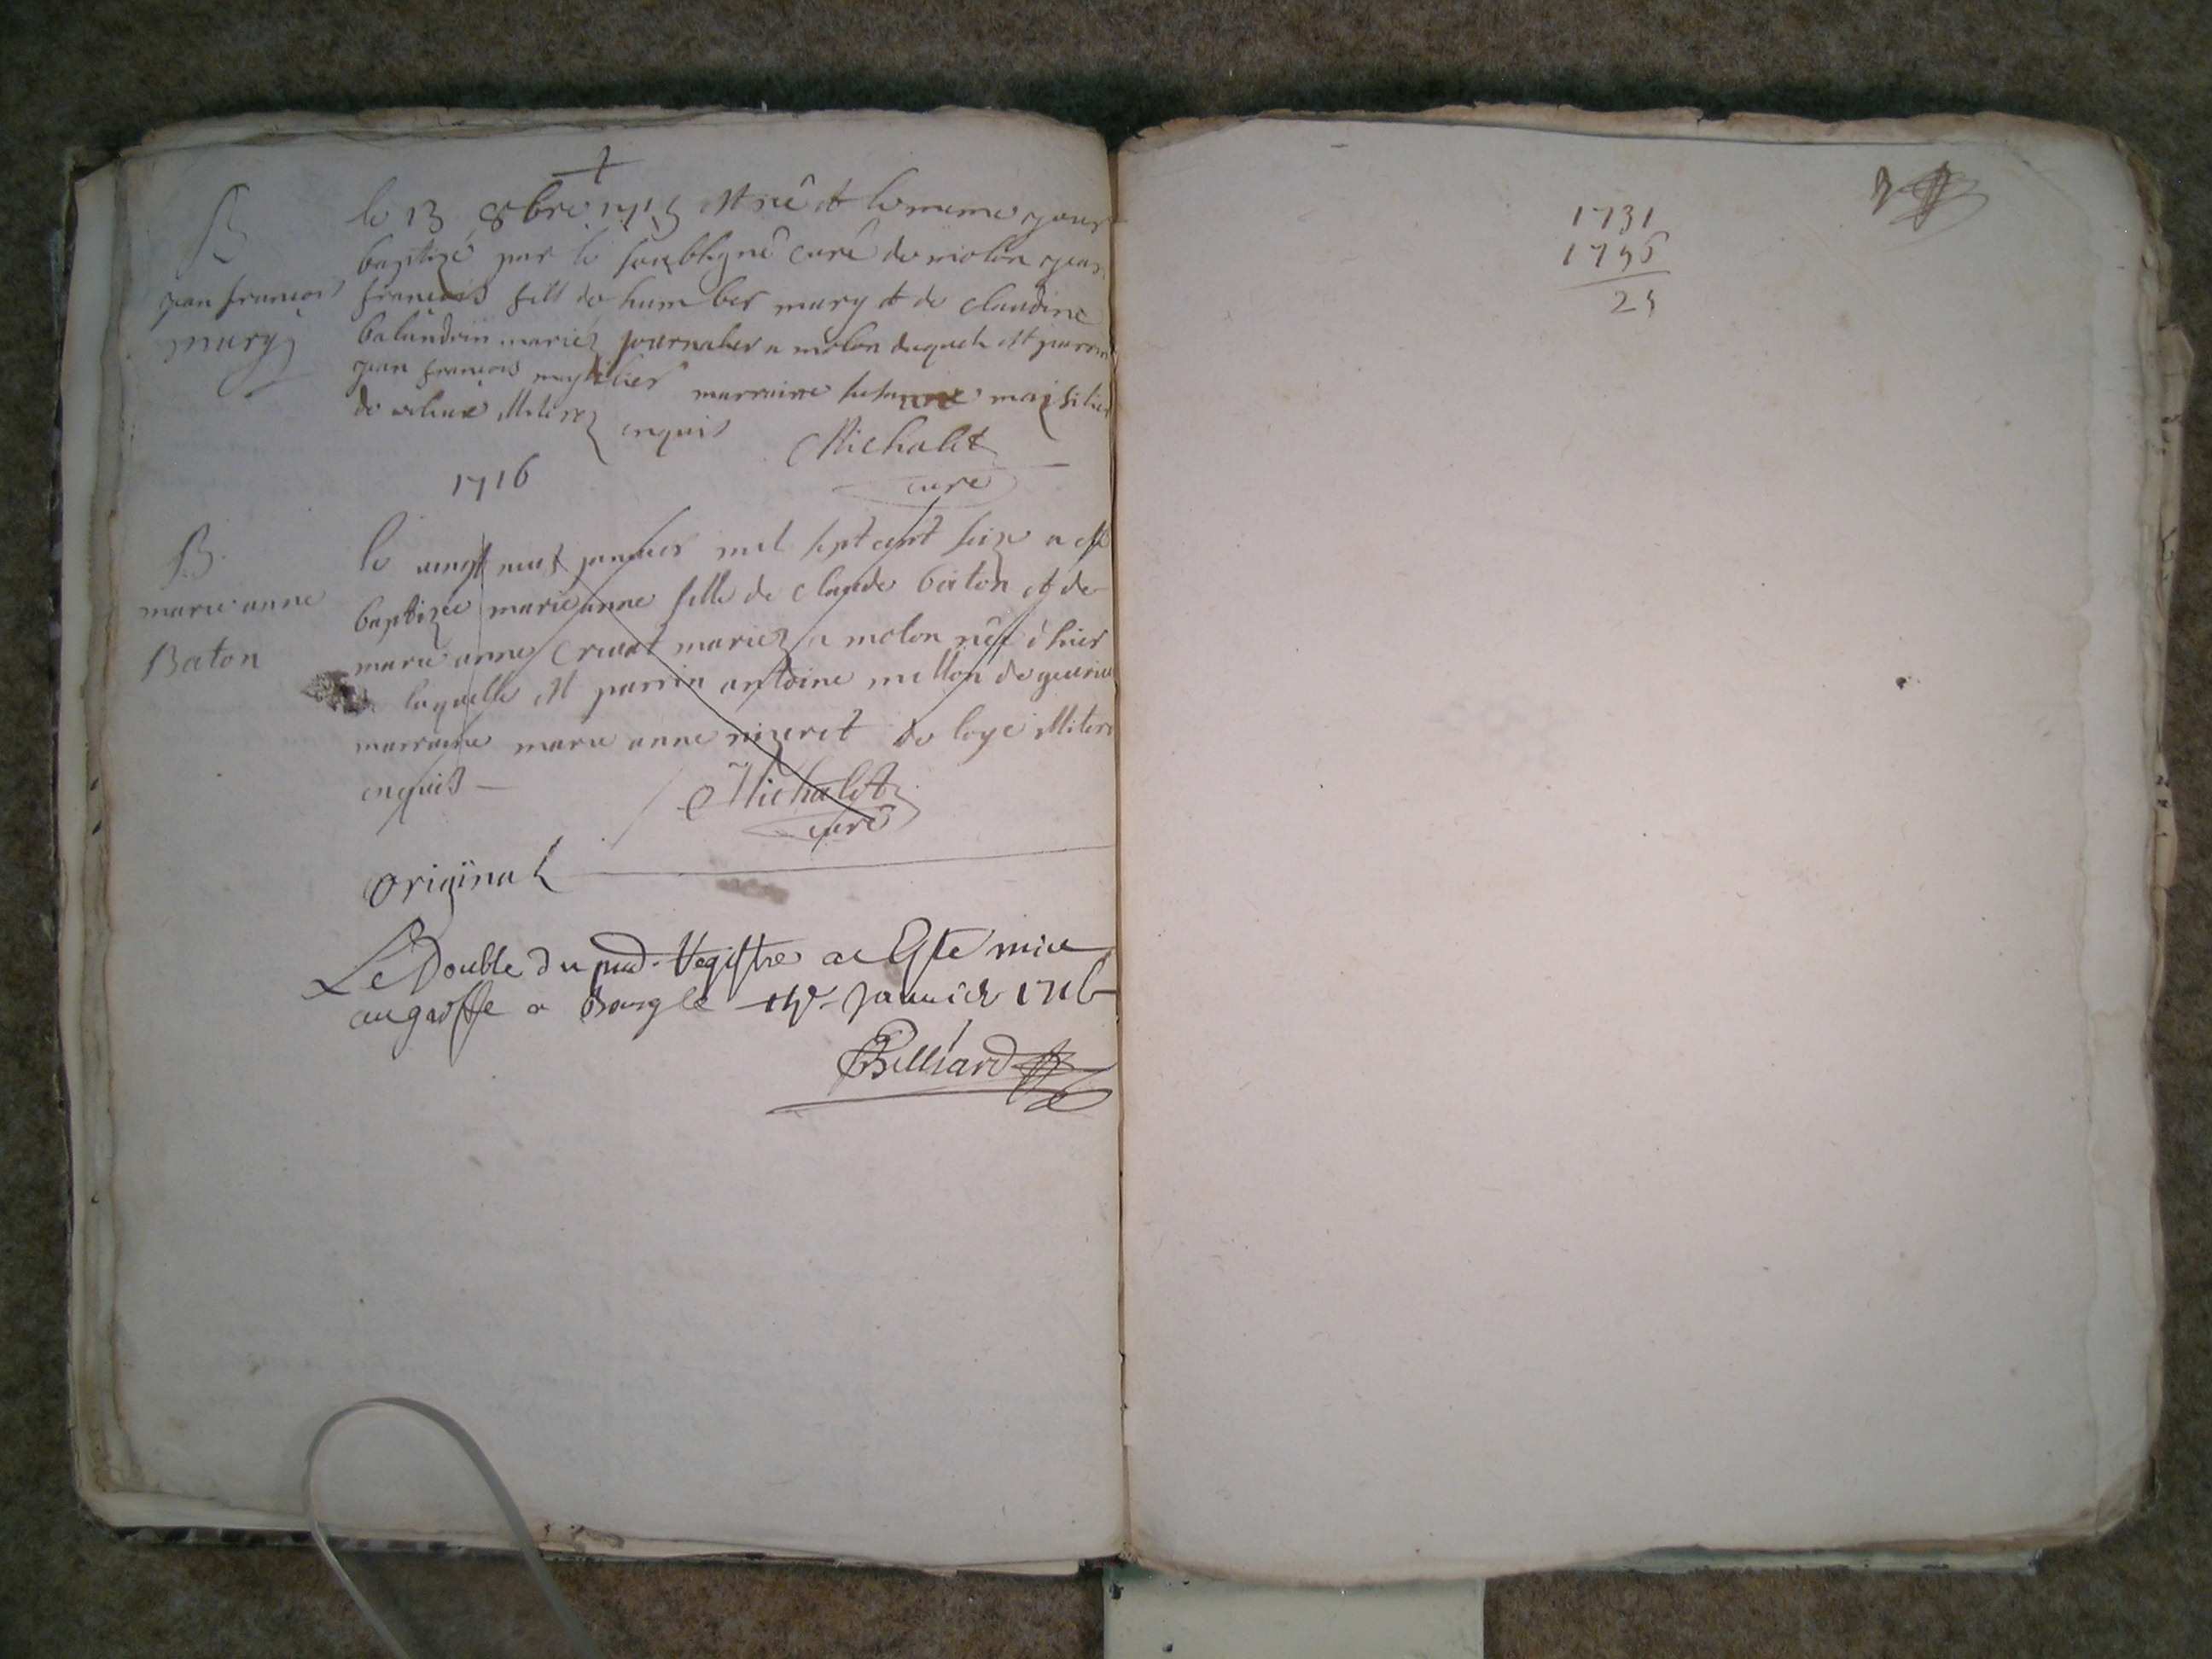 B
jean françois
mury
le 13 8bre 1715 est né et le meme jour
baptizé par le soubsigné curé de molon jean
françois fils de humber mury et de claudine
balandrin mariez journalier a molon duquel est parrin
jean françois marraine
de illiterez enquis
Michalet
curé
1716
B.
marie anne
Baton
le vingt neuf janvier mil sept cent seize a esté
baptizée marie anne fille de claude baton et de
marie anne mariez a molon née d'hier
laquelle est parrin antoine millon de
marraine marie anne nizeret de loye illiterez
enquis
Michalet
curé
original
Le Double du pnd. Registre a Este mis
au greffe a Bourg le janvier 1716
Billiard
1731
1756
25